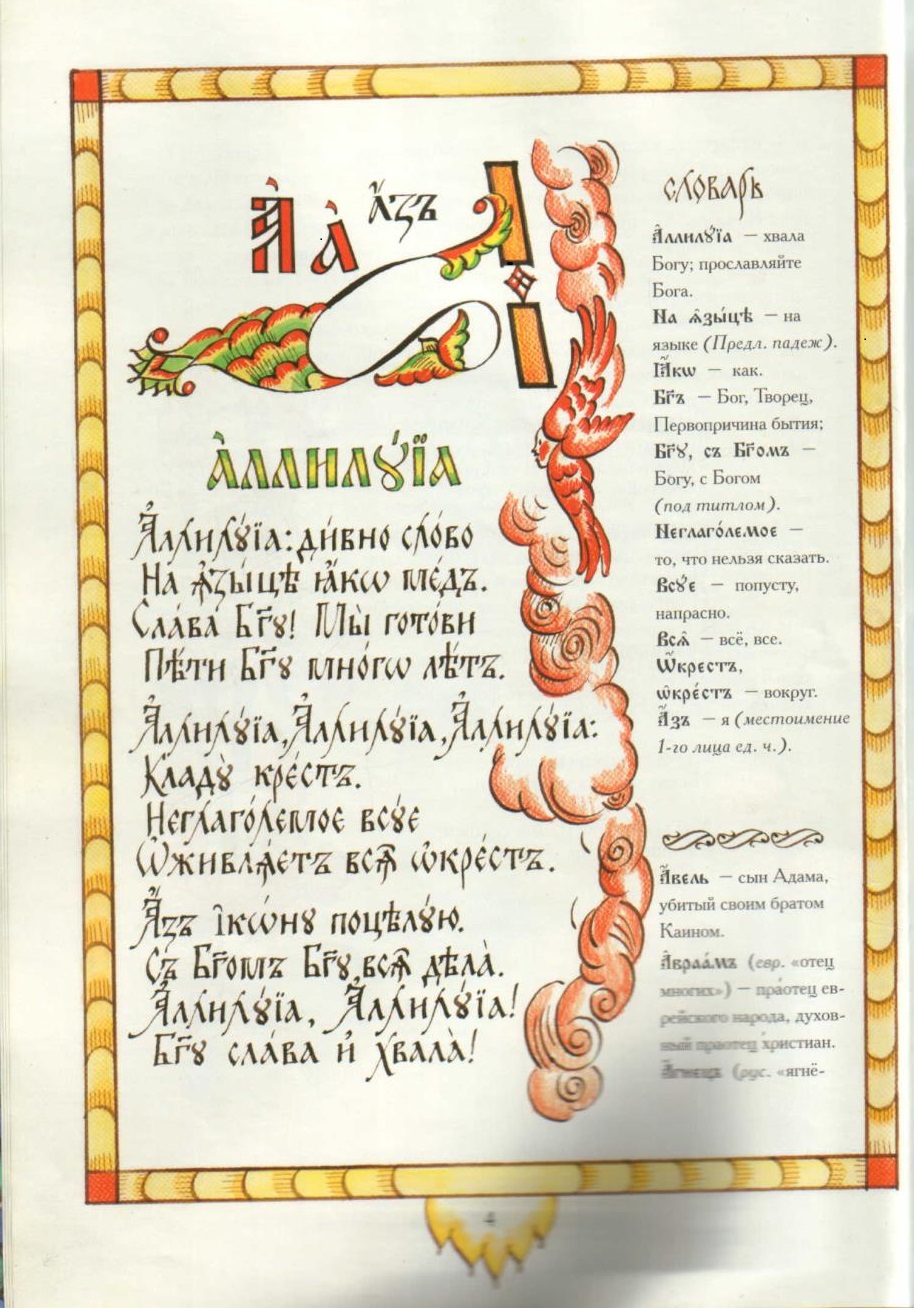 А҆ а҆ а҆́зъ
А҆ЛЛИЛꙊ́ЇА
А҆ллилꙋ́їа: ди́вно сло́во
На ѧ҆зы́цѣ ꙗ҆́кѡ ме́дъ.
Сла́ва Бг҃ꙋ! Мы̀ гото́ви
Пѣ́ти Бг҃ꙋ мно́гѡ лѣ́тъ.
А҆ллилꙋ́їа, А҆ллилꙋ́їа, А҆ллилꙋ́їа:
Кладꙋ̀ кре́стъ.
Неглаго́лемое всꙋ́е
Ѡ҆живлѧ́етъ всѧ̑ ѡ҆кре́стъ.
А҆́зъ і҆кѡ́нꙋ поцѣлꙋ́ю.
Съ Бг҃омъ Бг҃ꙋ всѧ̑ дѣла̀.
А҆ллилꙋ́їа, А҆ллилꙋ́їа!
Бг҃ꙋ сла́ва и҆ хвала̀!
словарь
А҆ллилꙋ́їа — хвала
Богу; прославляйте
Бога.
На ѧ҆зы́цѣ — на
языке (Предл. падеж).
Ꙗ҆́кѡ — как.
Бг҃ъ — Бог, Творец,
Первопричина бытия;
Бг҃ꙋ, съ Бг҃омъ —
Богу, с Богом
(под титлом).
Неглаго́лемое —
то, что нельзя сказать.
Всꙋ́е — попусту,
напрасно.
Всѧ̑ — всё, все.
Ѡ҆́крестъ,
ѡ҆кре́стъ — вокруг.
А҆́зъ — я (местоимение
1-го лица ед. ч.).
А҆́вель — сын Адама,
убитый своим братом
Каином.
А҆враа́мъ (евр. «отец
многих») — пра́отец ев-
рейского народа, духов-
ный праотец христиан.
А҆́гнецъ (рус. «ягнё-
4